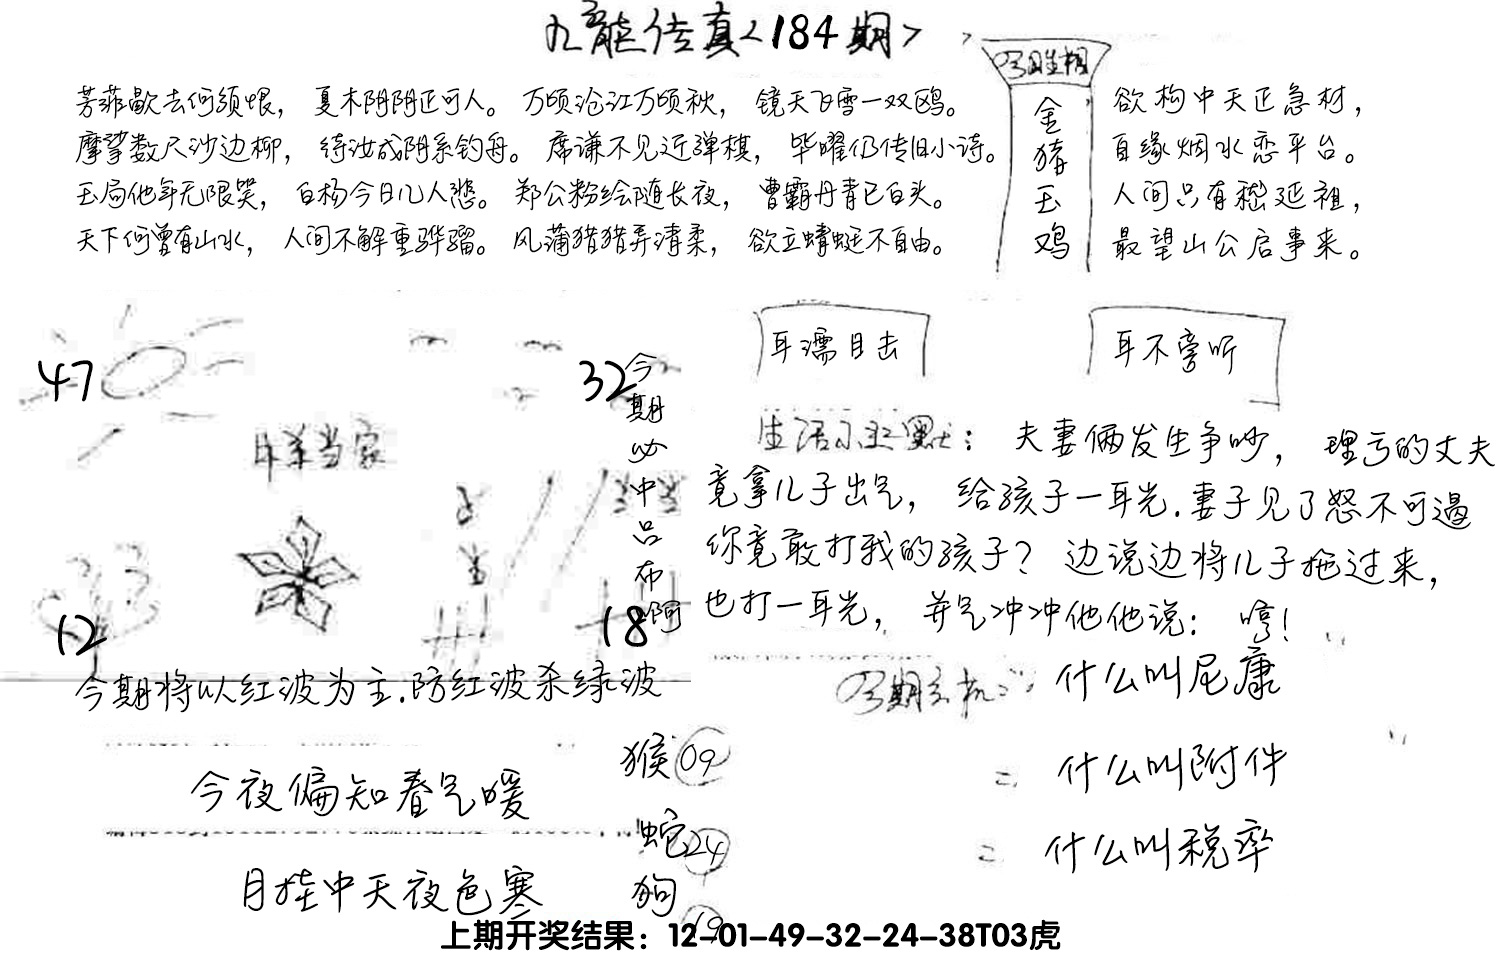 九龙传真<184期>
今日生相
金猪玉鸡
芳菲歇去何须恨，夏木阴阴正可人。万顷沧江万顷秋，镜天飞雪一双鸥。
摩挲数尺沙边柳，待汝成阴系钓舟。席谦不见近弹棋，毕曜仍传旧小诗。
玉局他年无限笑，白杨今日几人悲。郑公粉绘随长夜，曹霸丹青已白头。
天下何曾有山水，人间不解重骅骝。风蒲猎猎弄清柔，欲立蜻蜓不自由。
欲构中天正急材，
自缘烟水恋平台。
人间只有嵇延祖，
最望山公启事来。
47
32
12
18
今期必中品布啊
耳濡目击
耳不旁听
生活小幽默：夫妻俩发生争吵，理亏的丈夫
竟拿儿子出气，给孩子一耳光.妻子见了怒不可遏
你竟敢打我的孩子？边说边将儿子拖过来，
也打一耳光，并气冲冲他他说：哼！
今期将以红波为主.防红波杀绿波
今期玄机：什么叫尼康
= 什么叫附件
= 什么叫税率
今夜偏知春气暖
月挂中天夜色寒
猴09
蛇24
狗19
上期开奖结果：12-01-49-32-24-38T03虎